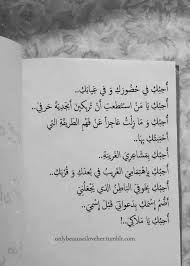 أُحِبُّكِ فِي حُضُورِكِ وَ فِي غِيَابِكِ..
أُحِبُّكِ يَا مَنْ اسْتَطَعْتِ أَنْ تُرْبِكِينَ أَبْجَدِيَّةَ حَرْفِي..
أُحِبُّكِ وَ مَا زِلْتُ عَاجِزاً عَنْ فَهْمِ الطَّرِيقَةِ الَّتِي
أَحْبَبْتُكِ بِهَا..
أُحِبُّكِ بِمَشَاعِرِي الغَرِيبَةِ..
أُحِبُّكِ بِاهْتِمَامِي الغَرِيبِ فِي بُعْدِكِ وَ قُرْبِكِ..
أُحِبُّكِ بِخَوْفِي البَاطِنِ الَّذِي يَجْعَلُنِي
أَضُمُّ اسْمَكِ بِدَعَوَاتِي قَبْلَ إِسْمِي..
أُحِبُّكِ يَا مَلَاكِي..!
onlybecauseiloveher.tumblr.com